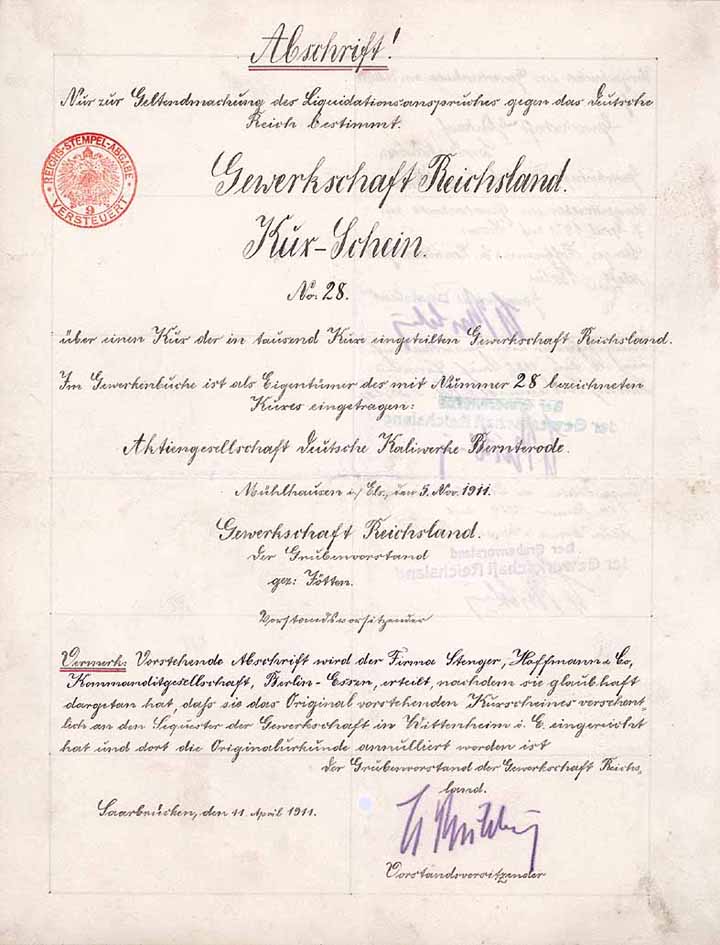 Abschrift!
Nur zur Geltendmachung des Liquidationsanspruches gegen das Deutsche
Reich bestimmt.
REICHS-STEMPEL-ABGABE
9
VERSTEUERT
Gewerkschaft Reichsland.
Kux-Schein.
No: 28.
über einen Kux der in tausend Kuxe eingeteilten Gewerkschaft Reichsland.
Im Gewerkenbuche ist als Eigentümer des mit Nummer 28 bezeichneten
Kuxes eingetragen:
Aktiengesellschaft Deutsche Kaliwerke Bernterode.
Mühlhausen i/ Els., den 5. Nov. 1911.
Gewerkschaft Reichsland.
Der Grubenvorstand
gez: Fötten.
Vorstandsvorsitzender
Vermerk: Vorstehende Abschrift wird der Firma Stenger, Hoffmann & Co,
Kommanditgesellschaft, Berlin-Essen, erteilt, nachdem sie glaubhaft
dargetan hat, dafs sie das Original vorstehenden Kuxscheines versehent-
lich an den Sequester der Gewerkschaft in Wittenheim i. E. eingereicht
hat und dort die Originalurkunde annulliert worden ist
Der Grubenvorstand der Gewerkschaft Reichs,
land.
Saarbrücken, den 11 April 1911.
Vorstandsvorsitzender